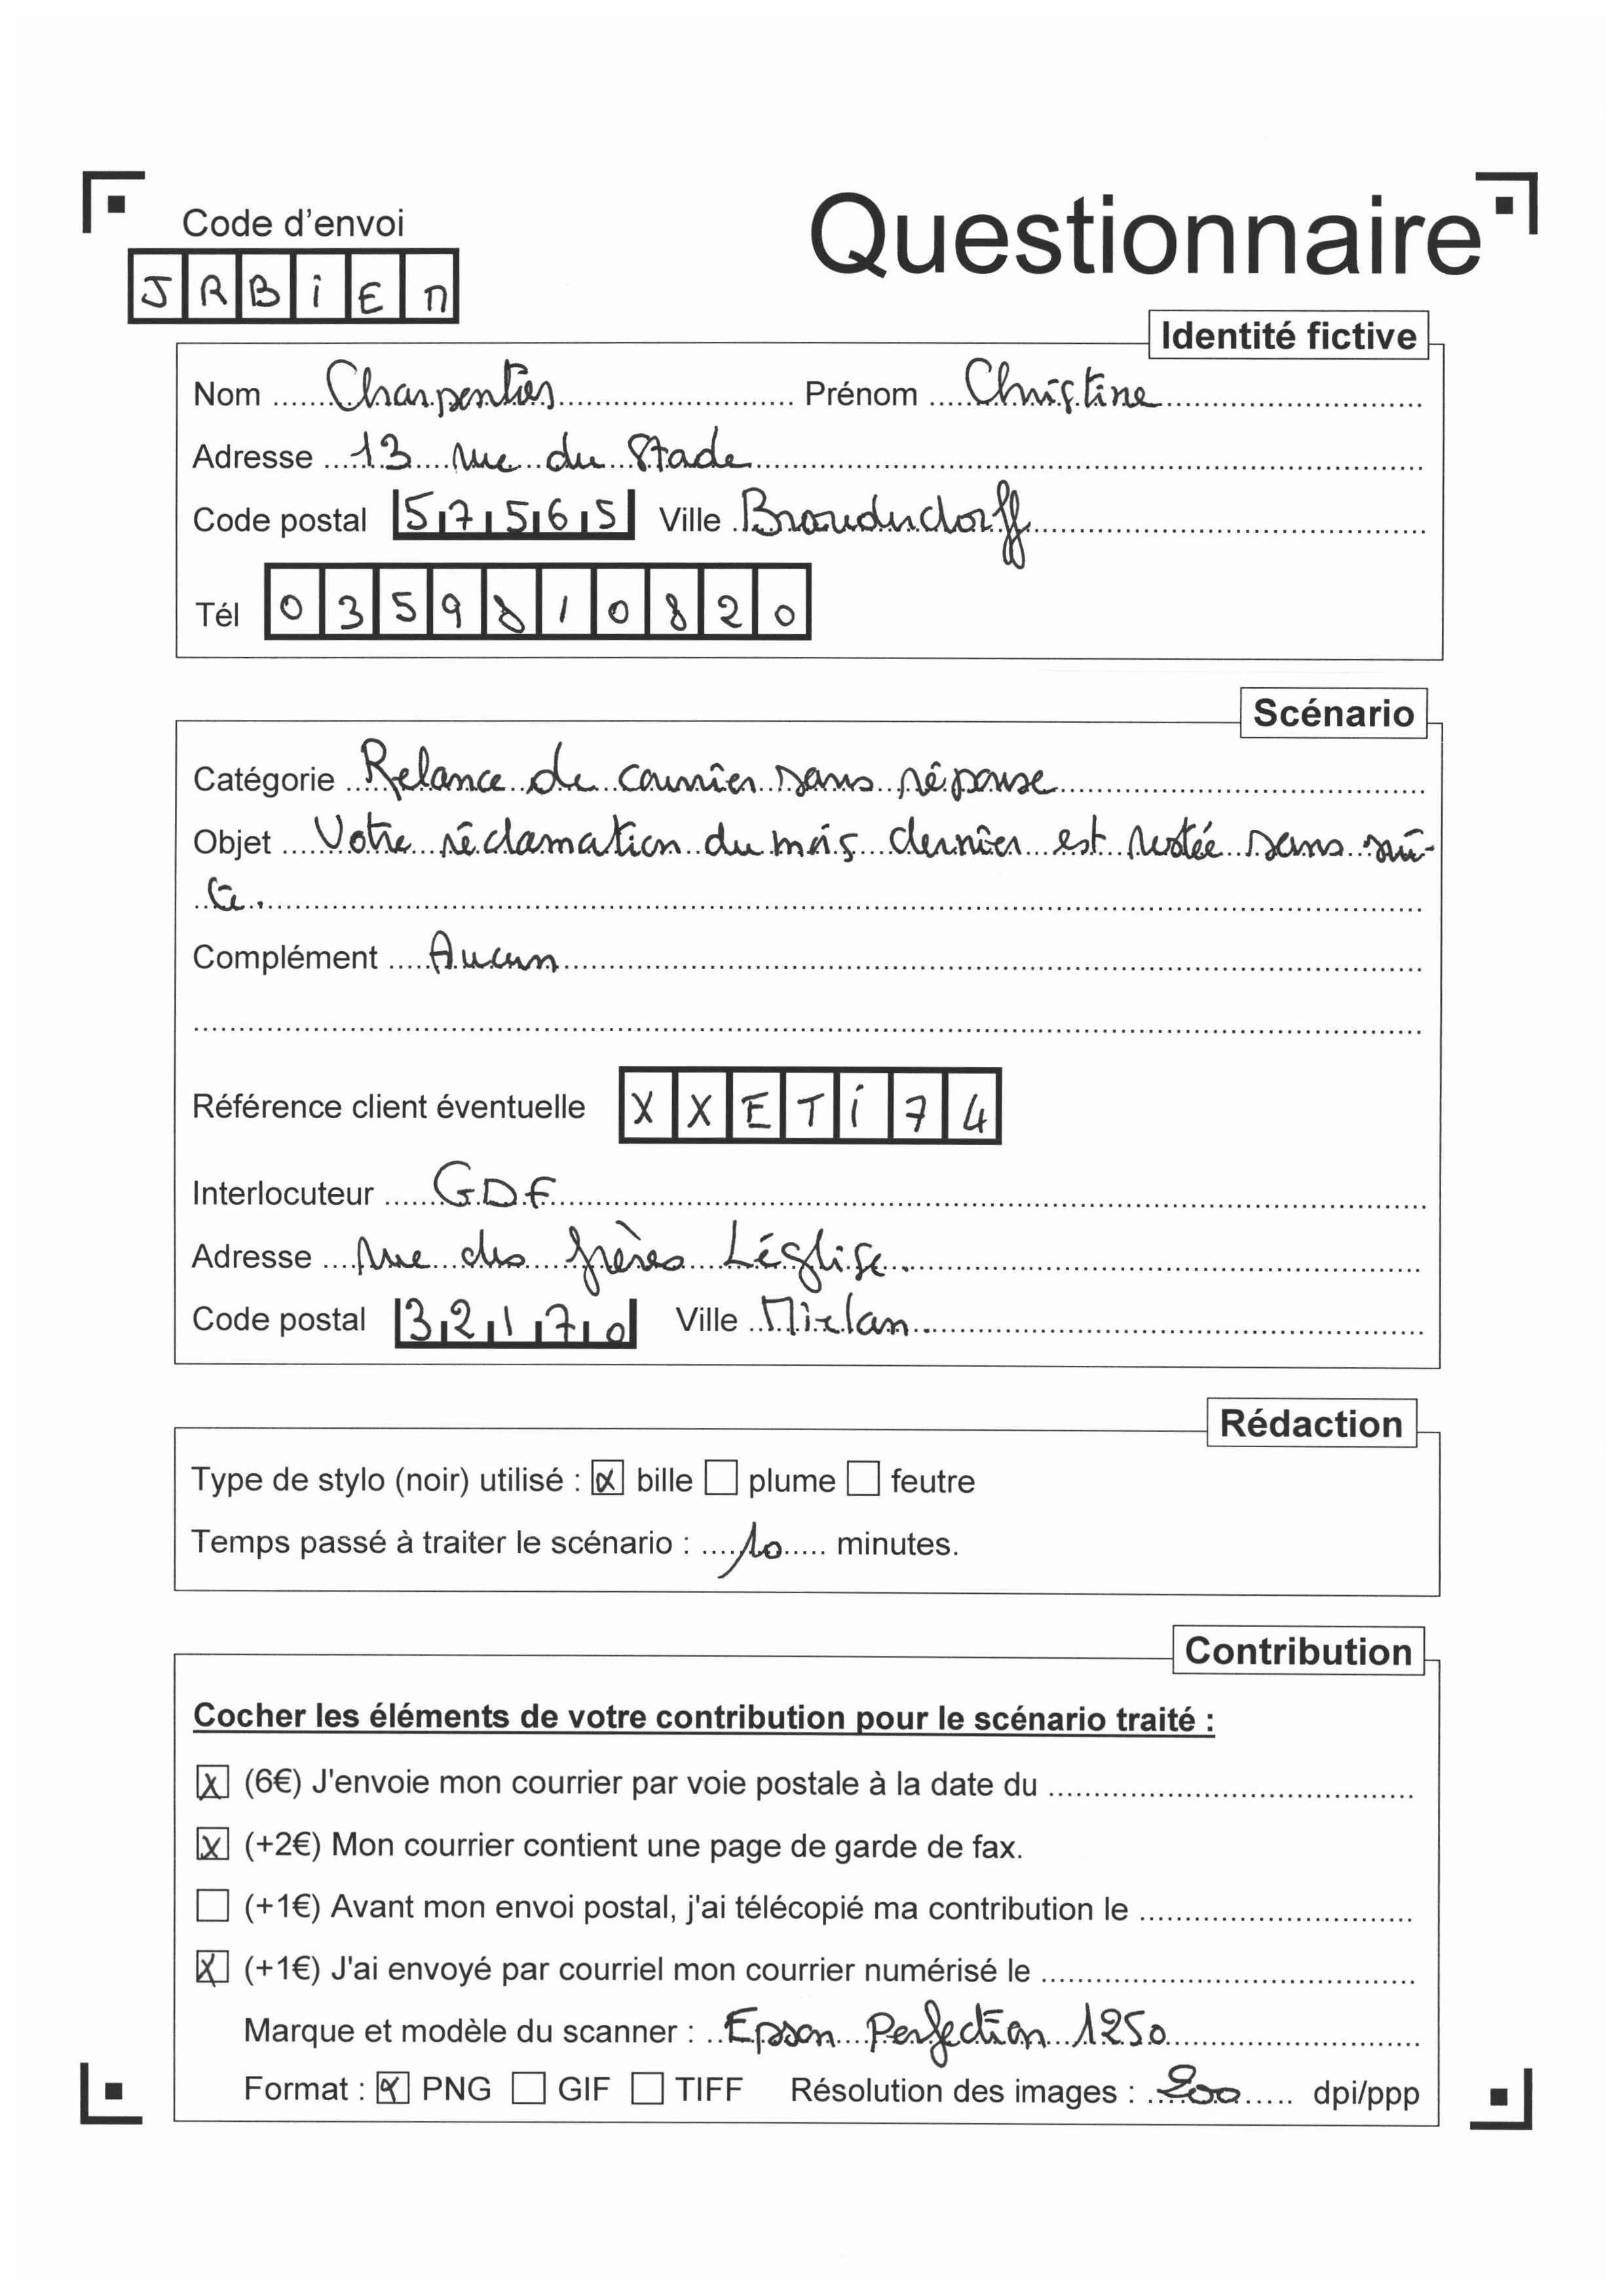 Code d'envoi
Questionnaire
JRBiEn
Identité fictive
Nom Charpentier Prénom Christine
Adresse 13 rue du Stade
Code postal 57565 Ville Brouderdorff
Tél 0359810820
Scénario
Catégorie Relance de courrier sans réponse
Objet Votre réclamation du mois dernier est restée sans sui-
te.
Complément Aucun
Référence client éventuelle XXETi74
Interlocuteur GDF
Adresse rue des frères Léglise.
Code postal 32170 Ville Mielan
Rédaction
Type de stylo (noir) utilisé : ☒ bille ☐ plume ☐ feutre
Temps passé à traiter le scénario : 10 minutes.
Contribution
Cocher les éléments de votre contribution pour le scénario traité :
☒ (6€) J'envoie mon courrier par voie postale à la date du
☒ (+2€) Mon courrier contient une page de garde de fax.
☐ (+1€) Avant mon envoi postal, j'ai télécopié ma contribution le
☒ (+1€) J'ai envoyé par courriel mon courrier numérisé le
Marque et modèle du scanner : Epson Perfection 1250
Format : ☒ PNG ☐ GIF ☐ TIFF Résolution des images : 200 dpi/ppp